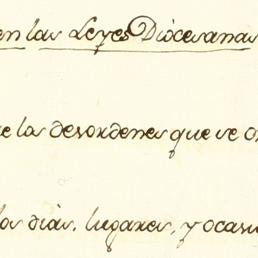 en las Leyes Diòcesanas
e las desordenes que se o
los dias, lugares, y ocasi